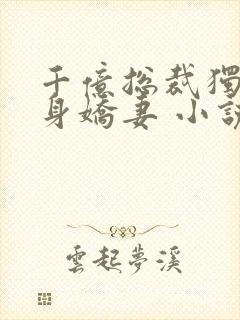 千億総裁獨
身嬌妻 小說
雲起夢溪